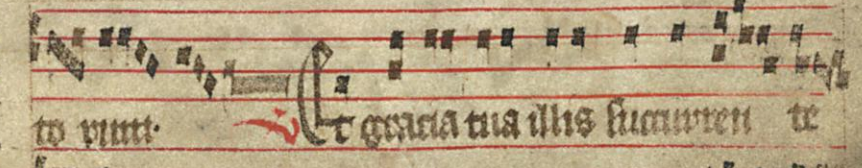 to vnnt. V Et gracia tua illis succurren te